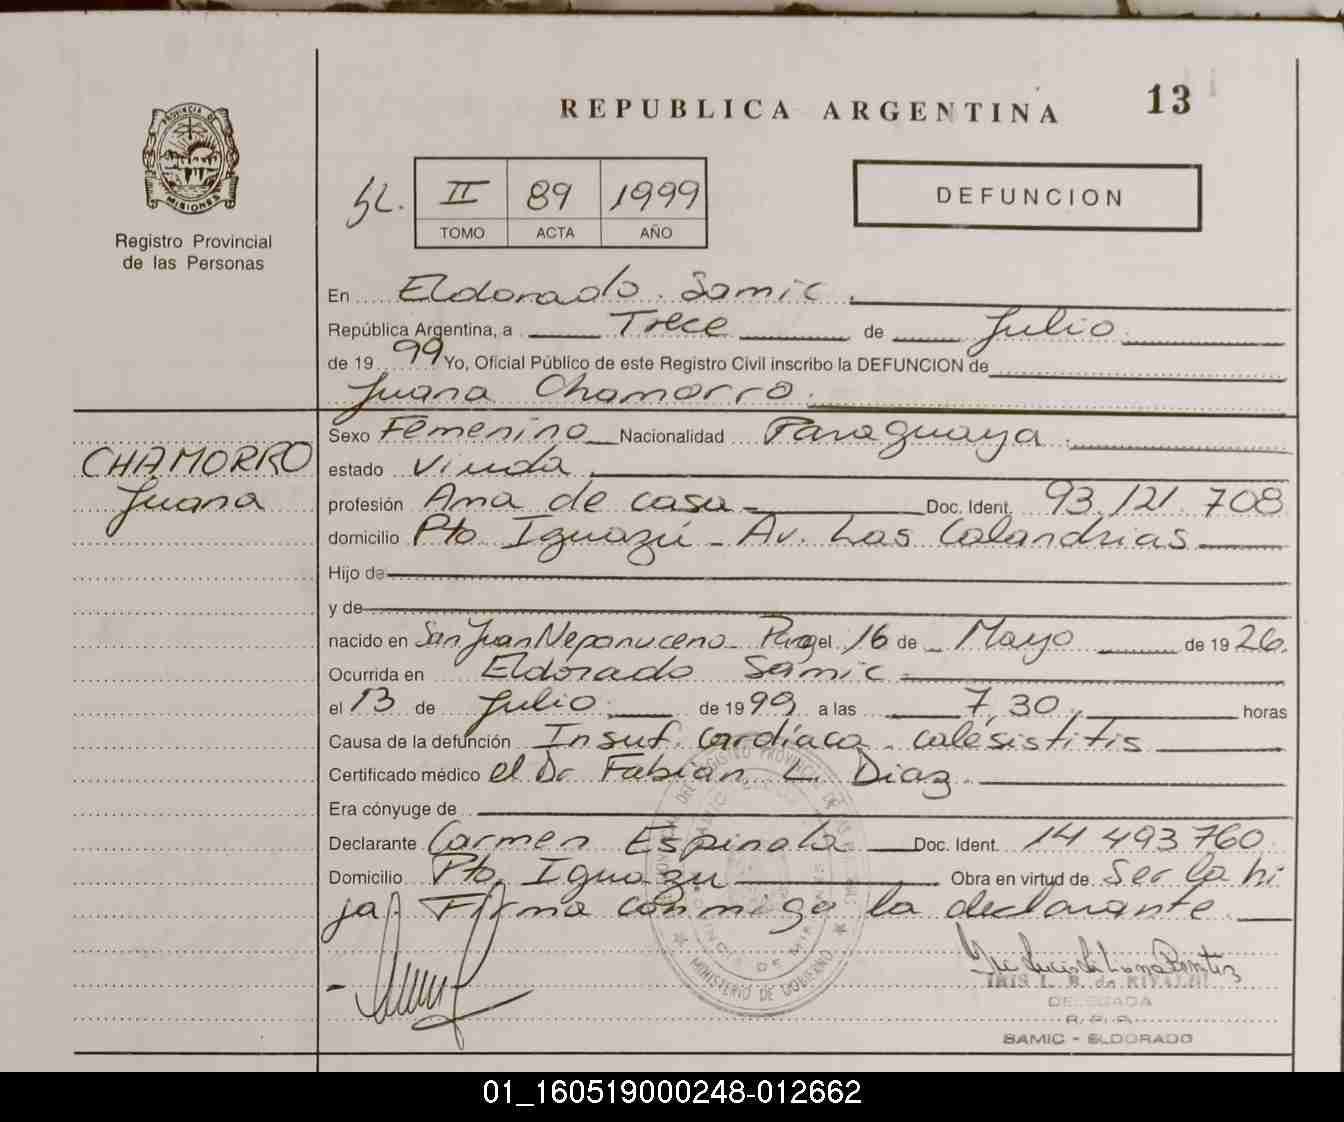 REPUBLICA ARGENTINA
13
PROVINCIA DE
MISIONES
Registro Provincial
de las Personas
II 89 1999
TOMO ACTA AÑO
DEFUNCION
En Eldorado. Samic.
República Argentina, a Trece de Julio
de 19 99 Yo, Oficial Público de este Registro Civil inscribo la DEFUNCION de
Juana Chamorro.
CHAMORRO
Juana
Sexo Femenino Nacionalidad Paraguaya.
estado Viuda
profesión Ama de casa Doc. Ident. 93.121.708
domicilio Pto Iguazú - Av. Las Calandrias
Hijo de
y de
nacido en San Juan Neponuceno - Parag el 16 de Mayo de 19 26.
Ocurrida en Eldorado Samic
el 13 de Julio. de 19 99 a las 7,30. horas
Causa de la defunción Insuf. Cardíaca. calésistitis
Certificado médico el Dr Fabian L. Diaz.
Era cónyuge de
Declarante Carmen Espinola Doc. Ident. 14 493 760
Domicilio Pto. Iguazu Obra en virtud de Ser la hi
ja. Firma conmigo la declarante
MINISTERIO DE GOBIERNO
DELEGADA
R.P.P.
SAMIC - ELDORADO
01_160519000248-012662